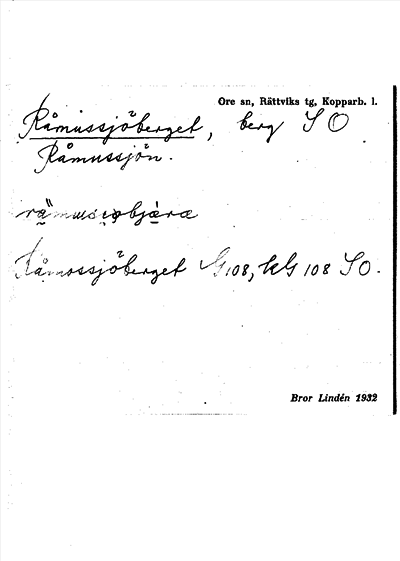 Ore sn, Rättviks tg, Kopparb. l.
Råmussjöberget, berg S O
Råmussjön.
Råmossjöberget G 108, kG 108 S O.
Bror Lindén 1932